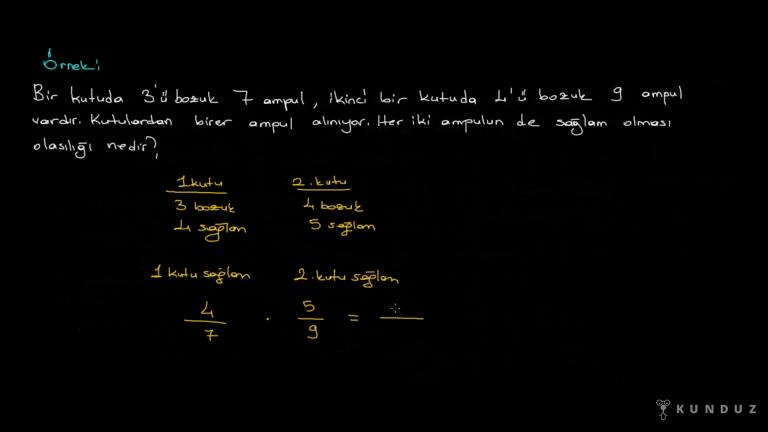 Örnek:
Bir kutuda 3'ü bozuk 7 ampul, ikinci bir kutuda 4'ü bozuk 9 ampul
vardır. Kutulardan birer ampul alınıyor. Her iki ampulun de sağlam olması
olasılığı nedir?
1 kutu 2. kutu
3 bozuk 4 bozuk
4 sağlam 5 sağlam
1 kutu sağlam 2. kutu sağlam
4/7 . 5/9 =
KUNDUZ